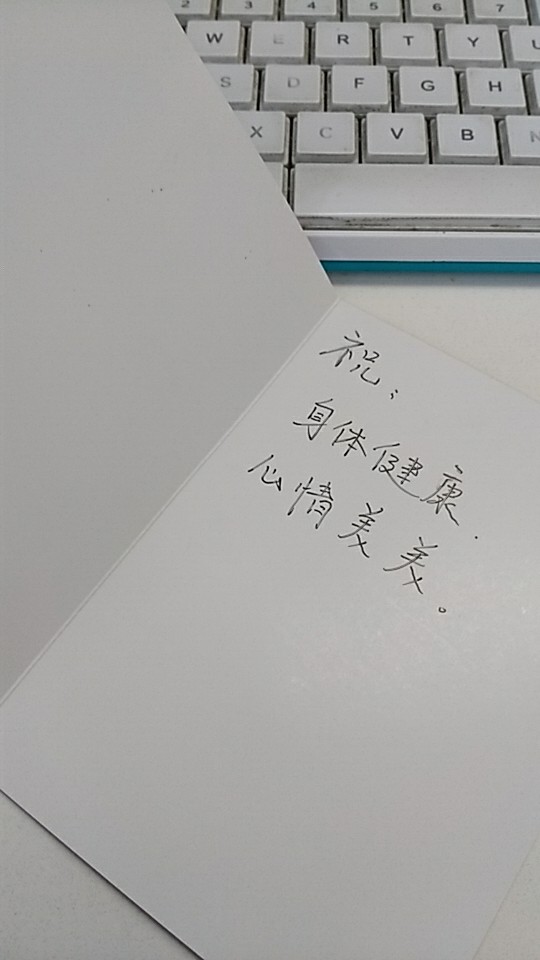 2 3 4 5 6 7
W E R T Y U
S D F G H
X C V B N
祝:
身体健康.
心情美美。